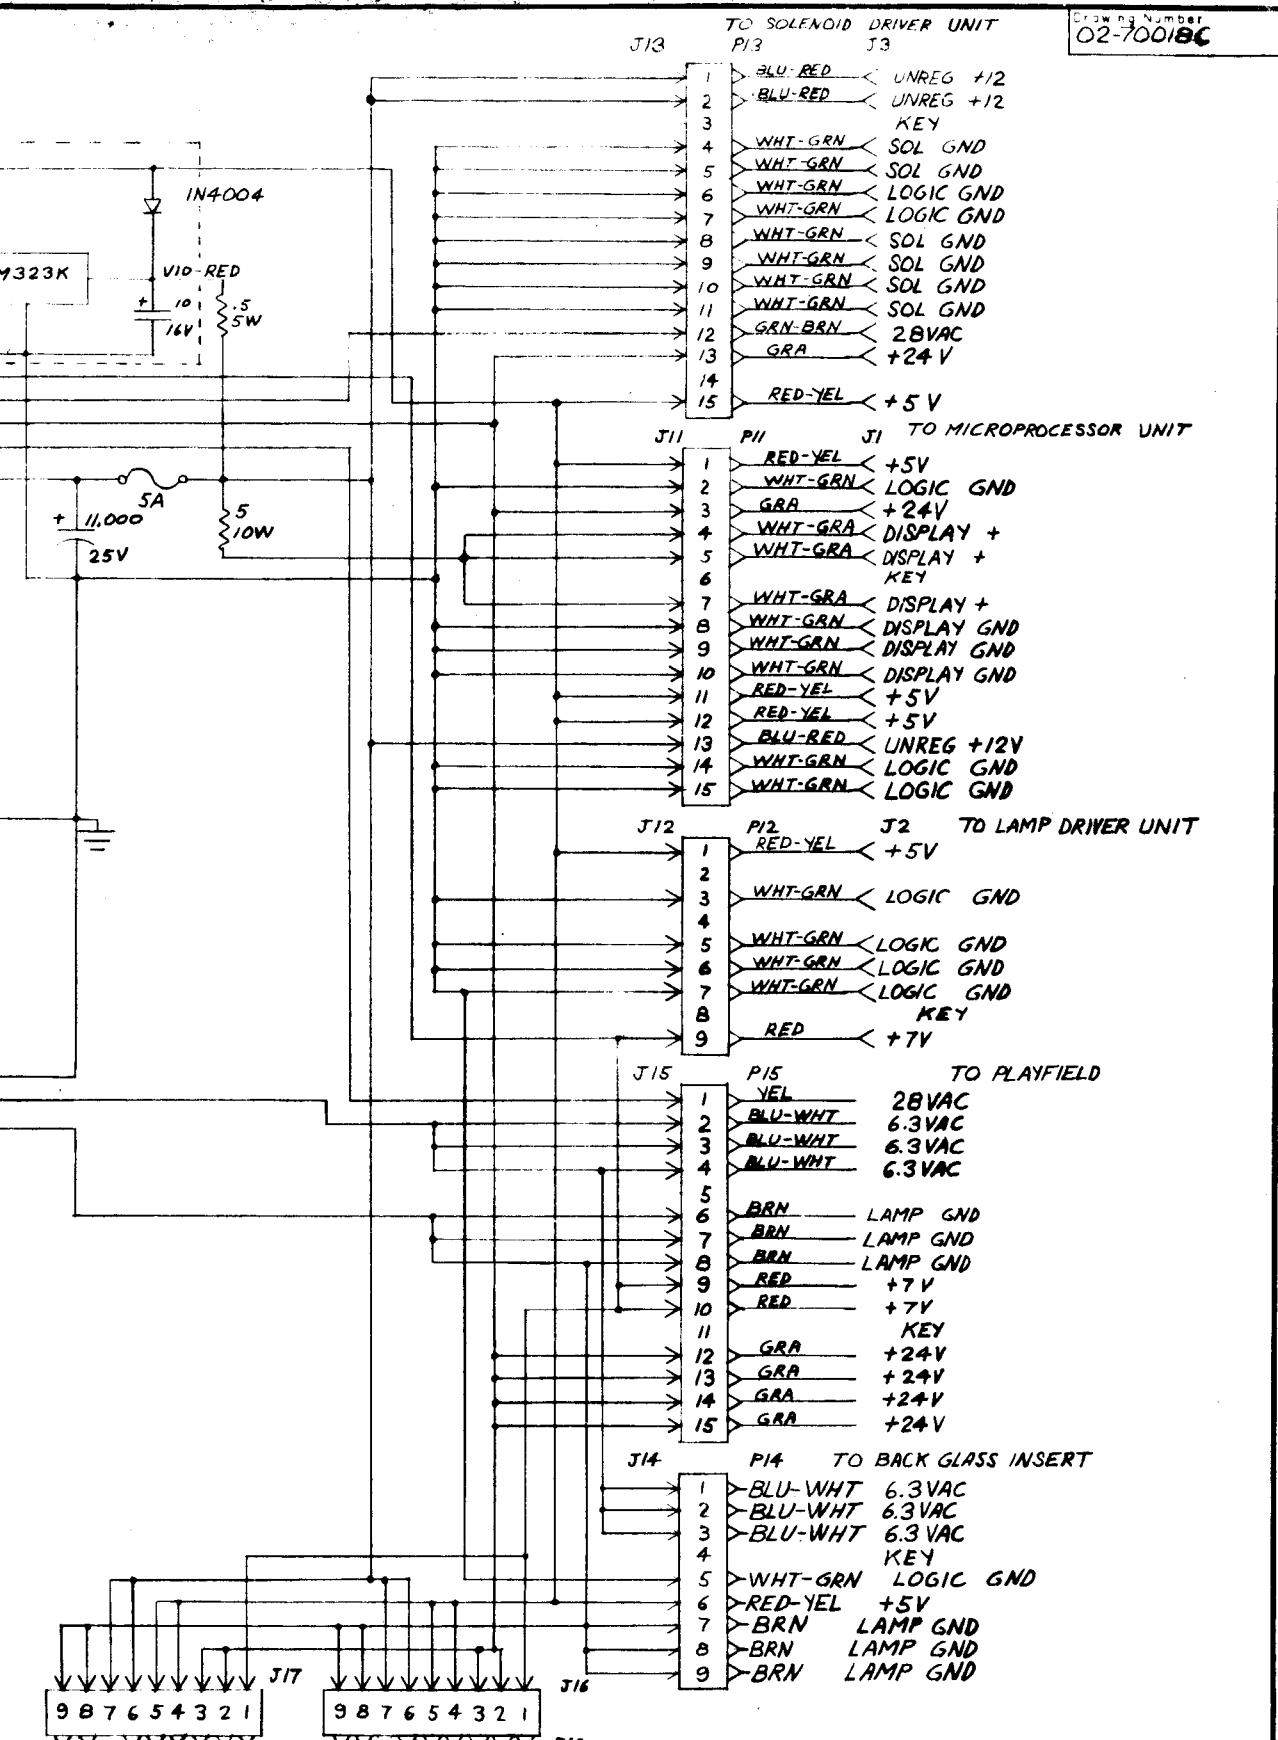 Drawing Number
02-70018C
TO SOLENOID DRIVER UNIT
J13 P13 J3
1 BLU-RED UNREG +12
2 BLU-RED UNREG +12
3 KEY
4 WHT-GRN SOL GND
5 WHT-GRN SOL GND
6 WHT-GRN LOGIC GND
7 WHT-GRN LOGIC GND
8 WHT-GRN SOL GND
9 WHT-GRN SOL GND
10 WHT-GRN SOL GND
11 WHT-GRN SOL GND
12 GRN-BRN 28VAC
13 GRA +24V
14
15 RED-YEL +5V
1N4004
M323K
VIO-RED
+ 10
16V
.5
5W
5A
+ 11,000
25V
5
10W
J11 P11 J1 TO MICROPROCESSOR UNIT
1 RED-YEL +5V
2 WHT-GRN LOGIC GND
3 GRA +24V
4 WHT-GRA DISPLAY +
5 WHT-GRA DISPLAY +
6 KEY
7 WHT-GRA DISPLAY +
8 WHT-GRN DISPLAY GND
9 WHT-GRN DISPLAY GND
10 WHT-GRN DISPLAY GND
11 RED-YEL +5V
12 RED-YEL +5V
13 BLU-RED UNREG +12V
14 WHT-GRN LOGIC GND
15 WHT-GRN LOGIC GND
J12 P12 J2 TO LAMP DRIVER UNIT
1 RED-YEL +5V
2
3 WHT-GRN LOGIC GND
4
5 WHT-GRN LOGIC GND
6 WHT-GRN LOGIC GND
7 WHT-GRN LOGIC GND
8 KEY
9 RED +7V
J15 P15 TO PLAYFIELD
1 YEL 28VAC
2 BLU-WHT 6.3VAC
3 BLU-WHT 6.3VAC
4 BLU-WHT 6.3VAC
5
6 BRN LAMP GND
7 BRN LAMP GND
8 BRN LAMP GND
9 RED +7V
10 RED +7V
11 KEY
12 GRA +24V
13 GRA +24V
14 GRA +24V
15 GRA +24V
J14 P14 TO BACK GLASS INSERT
1 BLU-WHT 6.3VAC
2 BLU-WHT 6.3VAC
3 BLU-WHT 6.3VAC
4 KEY
5 WHT-GRN LOGIC GND
6 RED-YEL +5V
7 BRN LAMP GND
8 BRN LAMP GND
9 BRN LAMP GND
J17
9 8 7 6 5 4 3 2 1
J16
9 8 7 6 5 4 3 2 1